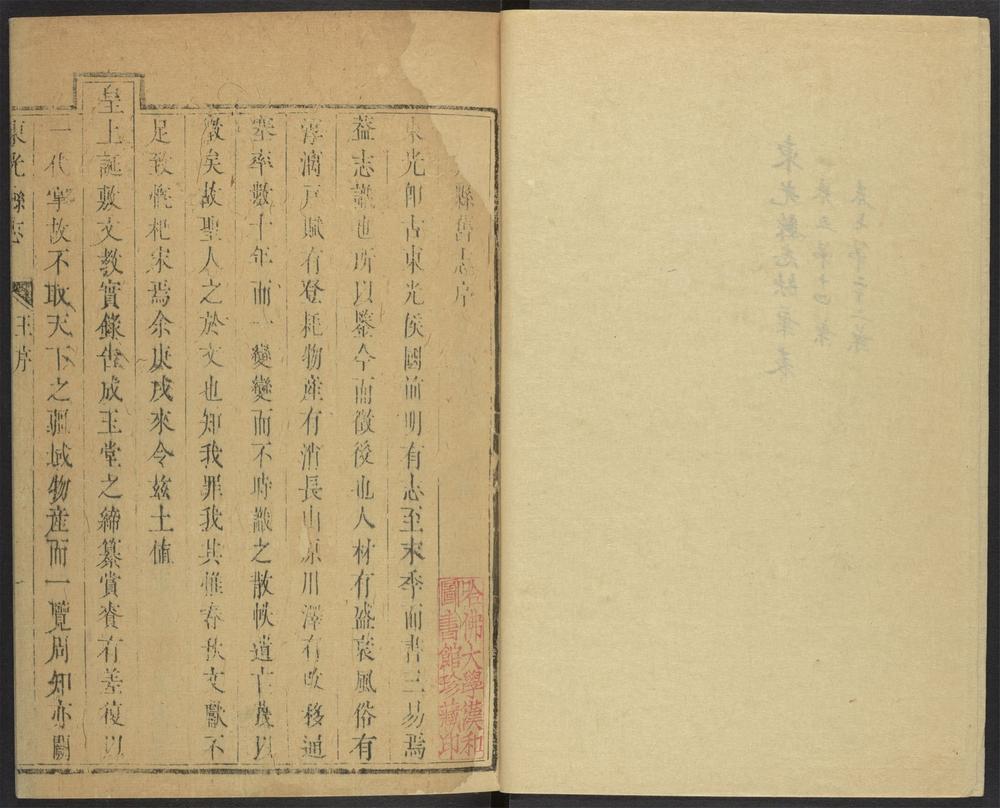 縣舊志序
東光即古東光侯國前明有志至末季而書三易焉
蓋志識也所以鑒今而徵後也人材有盛衰風俗有
淳漓戶賦有登耗物產有消長山原川澤有改移通
塞率數十年而一變變而不時識之散帙遺亡以
徵矣故聖人之於文也知我罪我其惟春秋文獻不
足致慨杞宋焉余庚戌來令茲土值
皇上誕敷文教實錄告成玉堂之締纂賞賚有差復以
一代掌故不取天下之疆域物產而一覽周知亦闕
東光縣志 王序 一
哈佛大學漢和
圖書館珍藏印